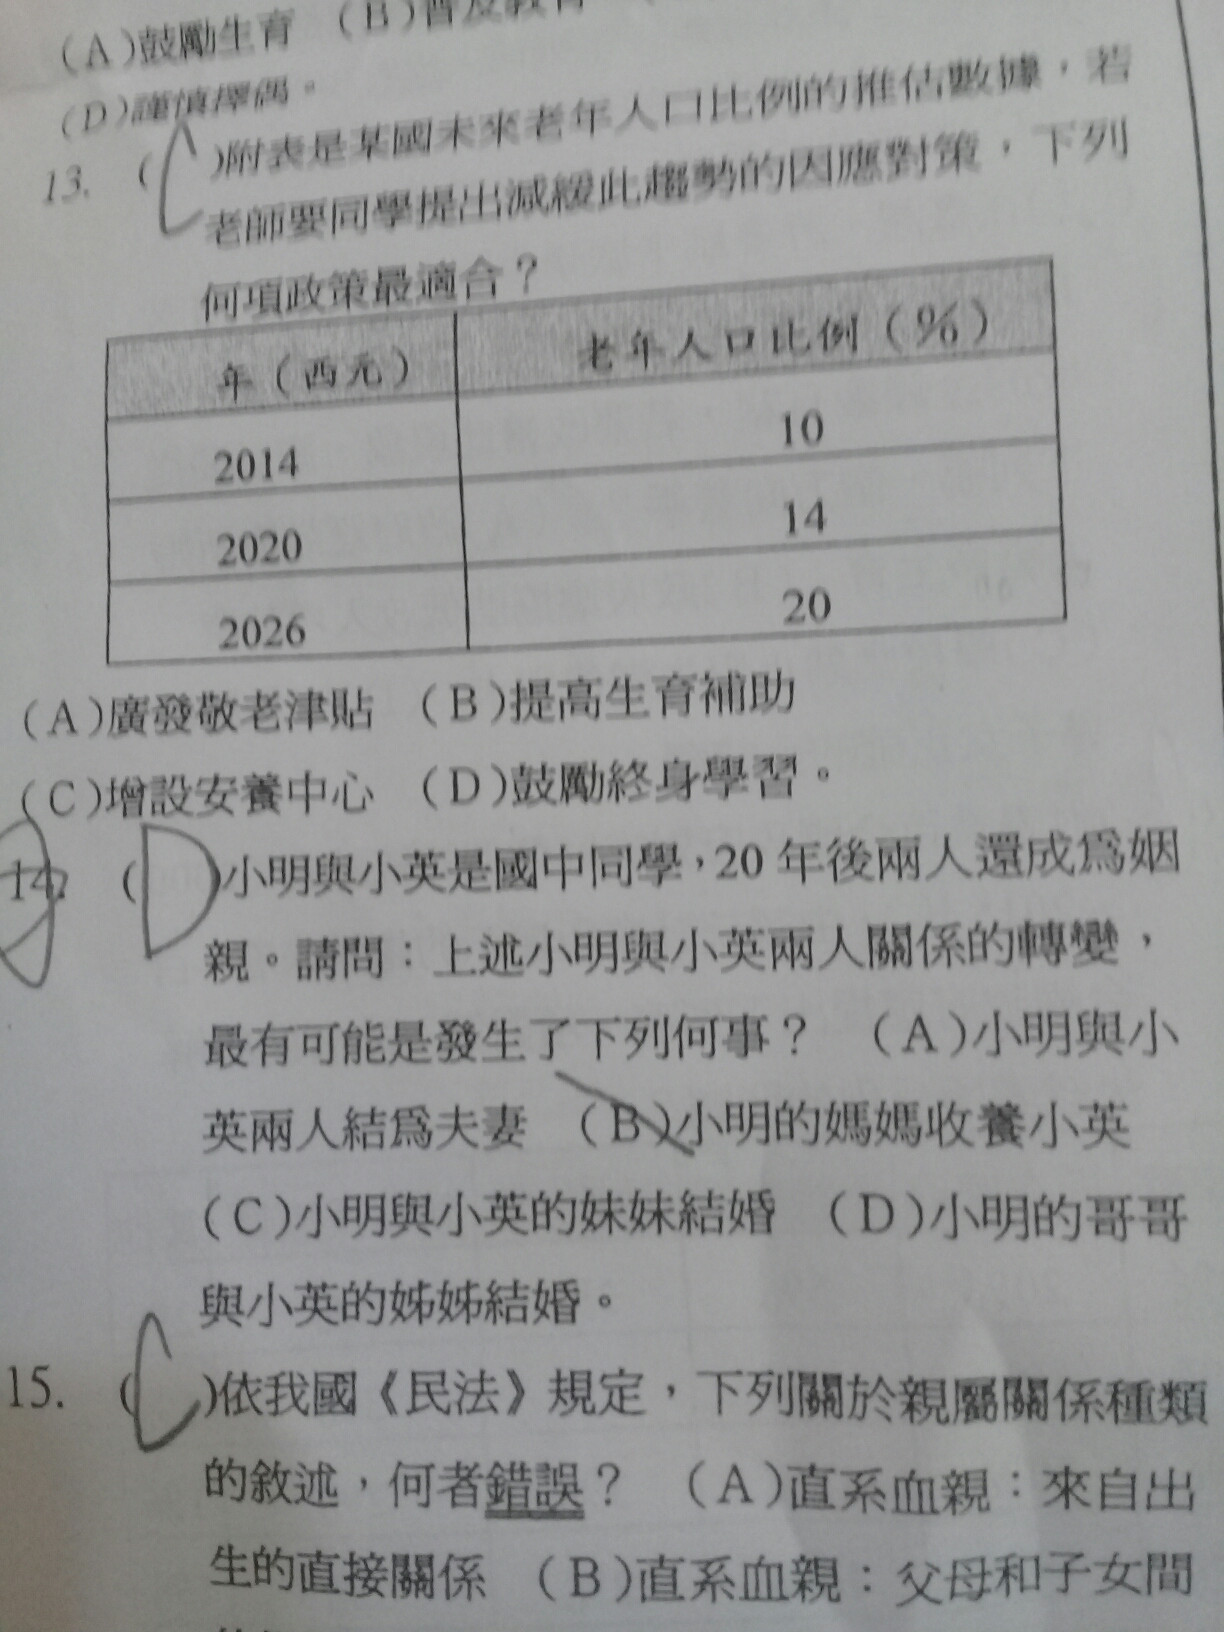 (A)鼓勵生育 (B)普及教育
(D)謹慎擇偶。
13. (C)附表是某國未來老年人口比例的推估數據,若
老師要同學提出減緩此趨勢的因應對策,下列
何項政策最適合?
年(西元) 老年人口比例(%)
2014 10
2020 14
2026 20
(A)廣發敬老津貼 (B)提高生育補助
(C)增設安養中心 (D)鼓勵終身學習。
14. (D)小明與小英是國中同學,20 年後兩人還成為姻
親。請問:上述小明與小英兩人關係的轉變,
最有可能是發生了下列何事? (A)小明與小
英兩人結為夫妻 (B)小明的媽媽收養小英
(C)小明與小英的妹妹結婚 (D)小明的哥哥
與小英的姊姊結婚。
15. (C)依我國《民法》規定,下列關於親屬關係種類
的敘述,何者錯誤? (A)直系血親:來自出
生的直接關係 (B)直系血親:父母和子女間